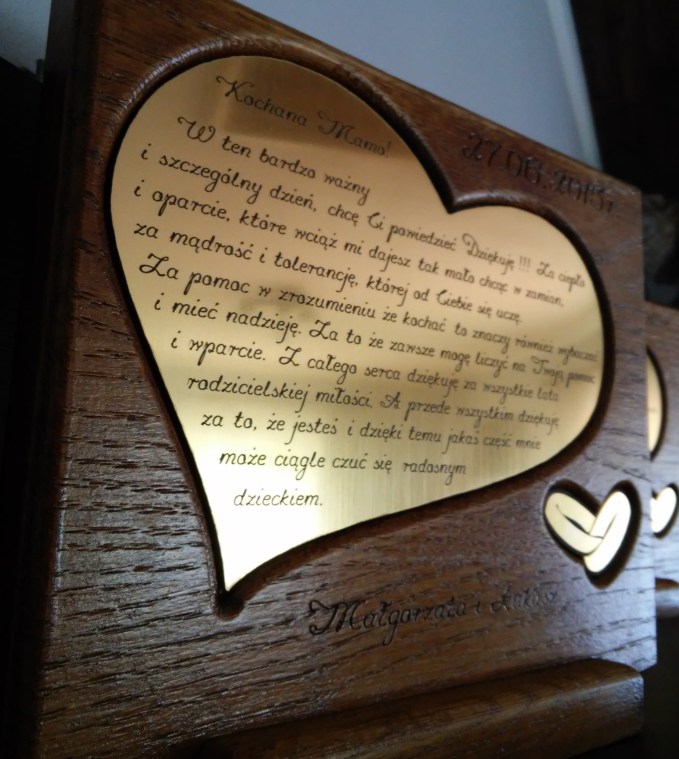 Kochana Mamo!
27.06.2015r.
W ten bardzo ważny
i szczególny dzień, chcę Ci powiedzieć Dziękuję !!! Za ciepło
i oparcie, które wciąż mi dajesz tak mało chcąc w zamian,
za mądrość i tolerancję, której od Ciebie się uczę.
Za pomoc w zrozumieniu że kochać to znaczy również wybaczać
i mieć nadzieję. Za to że zawsze mogę liczyć na Twoją pomoc
i wparcie. Z całego serca dziękuję za wszystkie lata
rodzicielskiej miłości. A przede wszystkim dziękuję
za to, że jesteś i dzięki temu jakaś cześć mnie
może ciągle czuć się radosnym
dzieckiem.
Małgorzata i